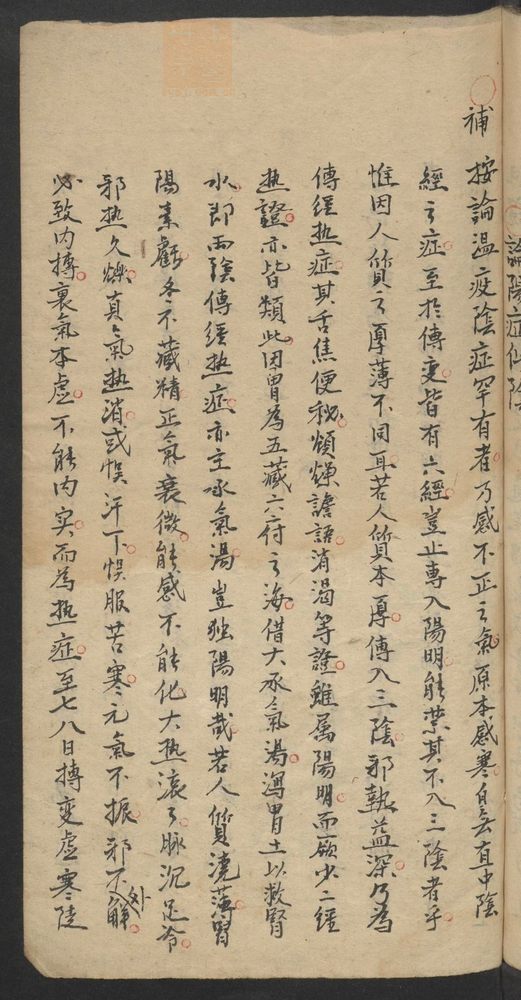 論陽症似陰
補 按論溫疫陰症罕有者乃感不正之氣原本感寒自無直中陰
經之症至於傳变皆有六經豈止專入陽明能禁其不入三陰者乎
惟因人質之厚薄不同耳若人質本厚傳入三陰邪執益深乃為
傳經热症其舌焦便秘煩燥譫語消渴等證雖属陽明而厥少二經
热證亦皆類此因胃為五藏六府之海借大承氣湯瀉胃土以救腎
水即而陰傳經热症亦主承氣湯豈独陽明哉若人質澆薄腎
陽素虧冬不藏精正氣衰微能感不能化大热滚了脉沉足冷
邪热久燥真氣热消或悮汗下悮服苦寒元氣不振邪不外解
必致内摶裏氣本虛不能内实而為热症至七八日摶变虛寒陡